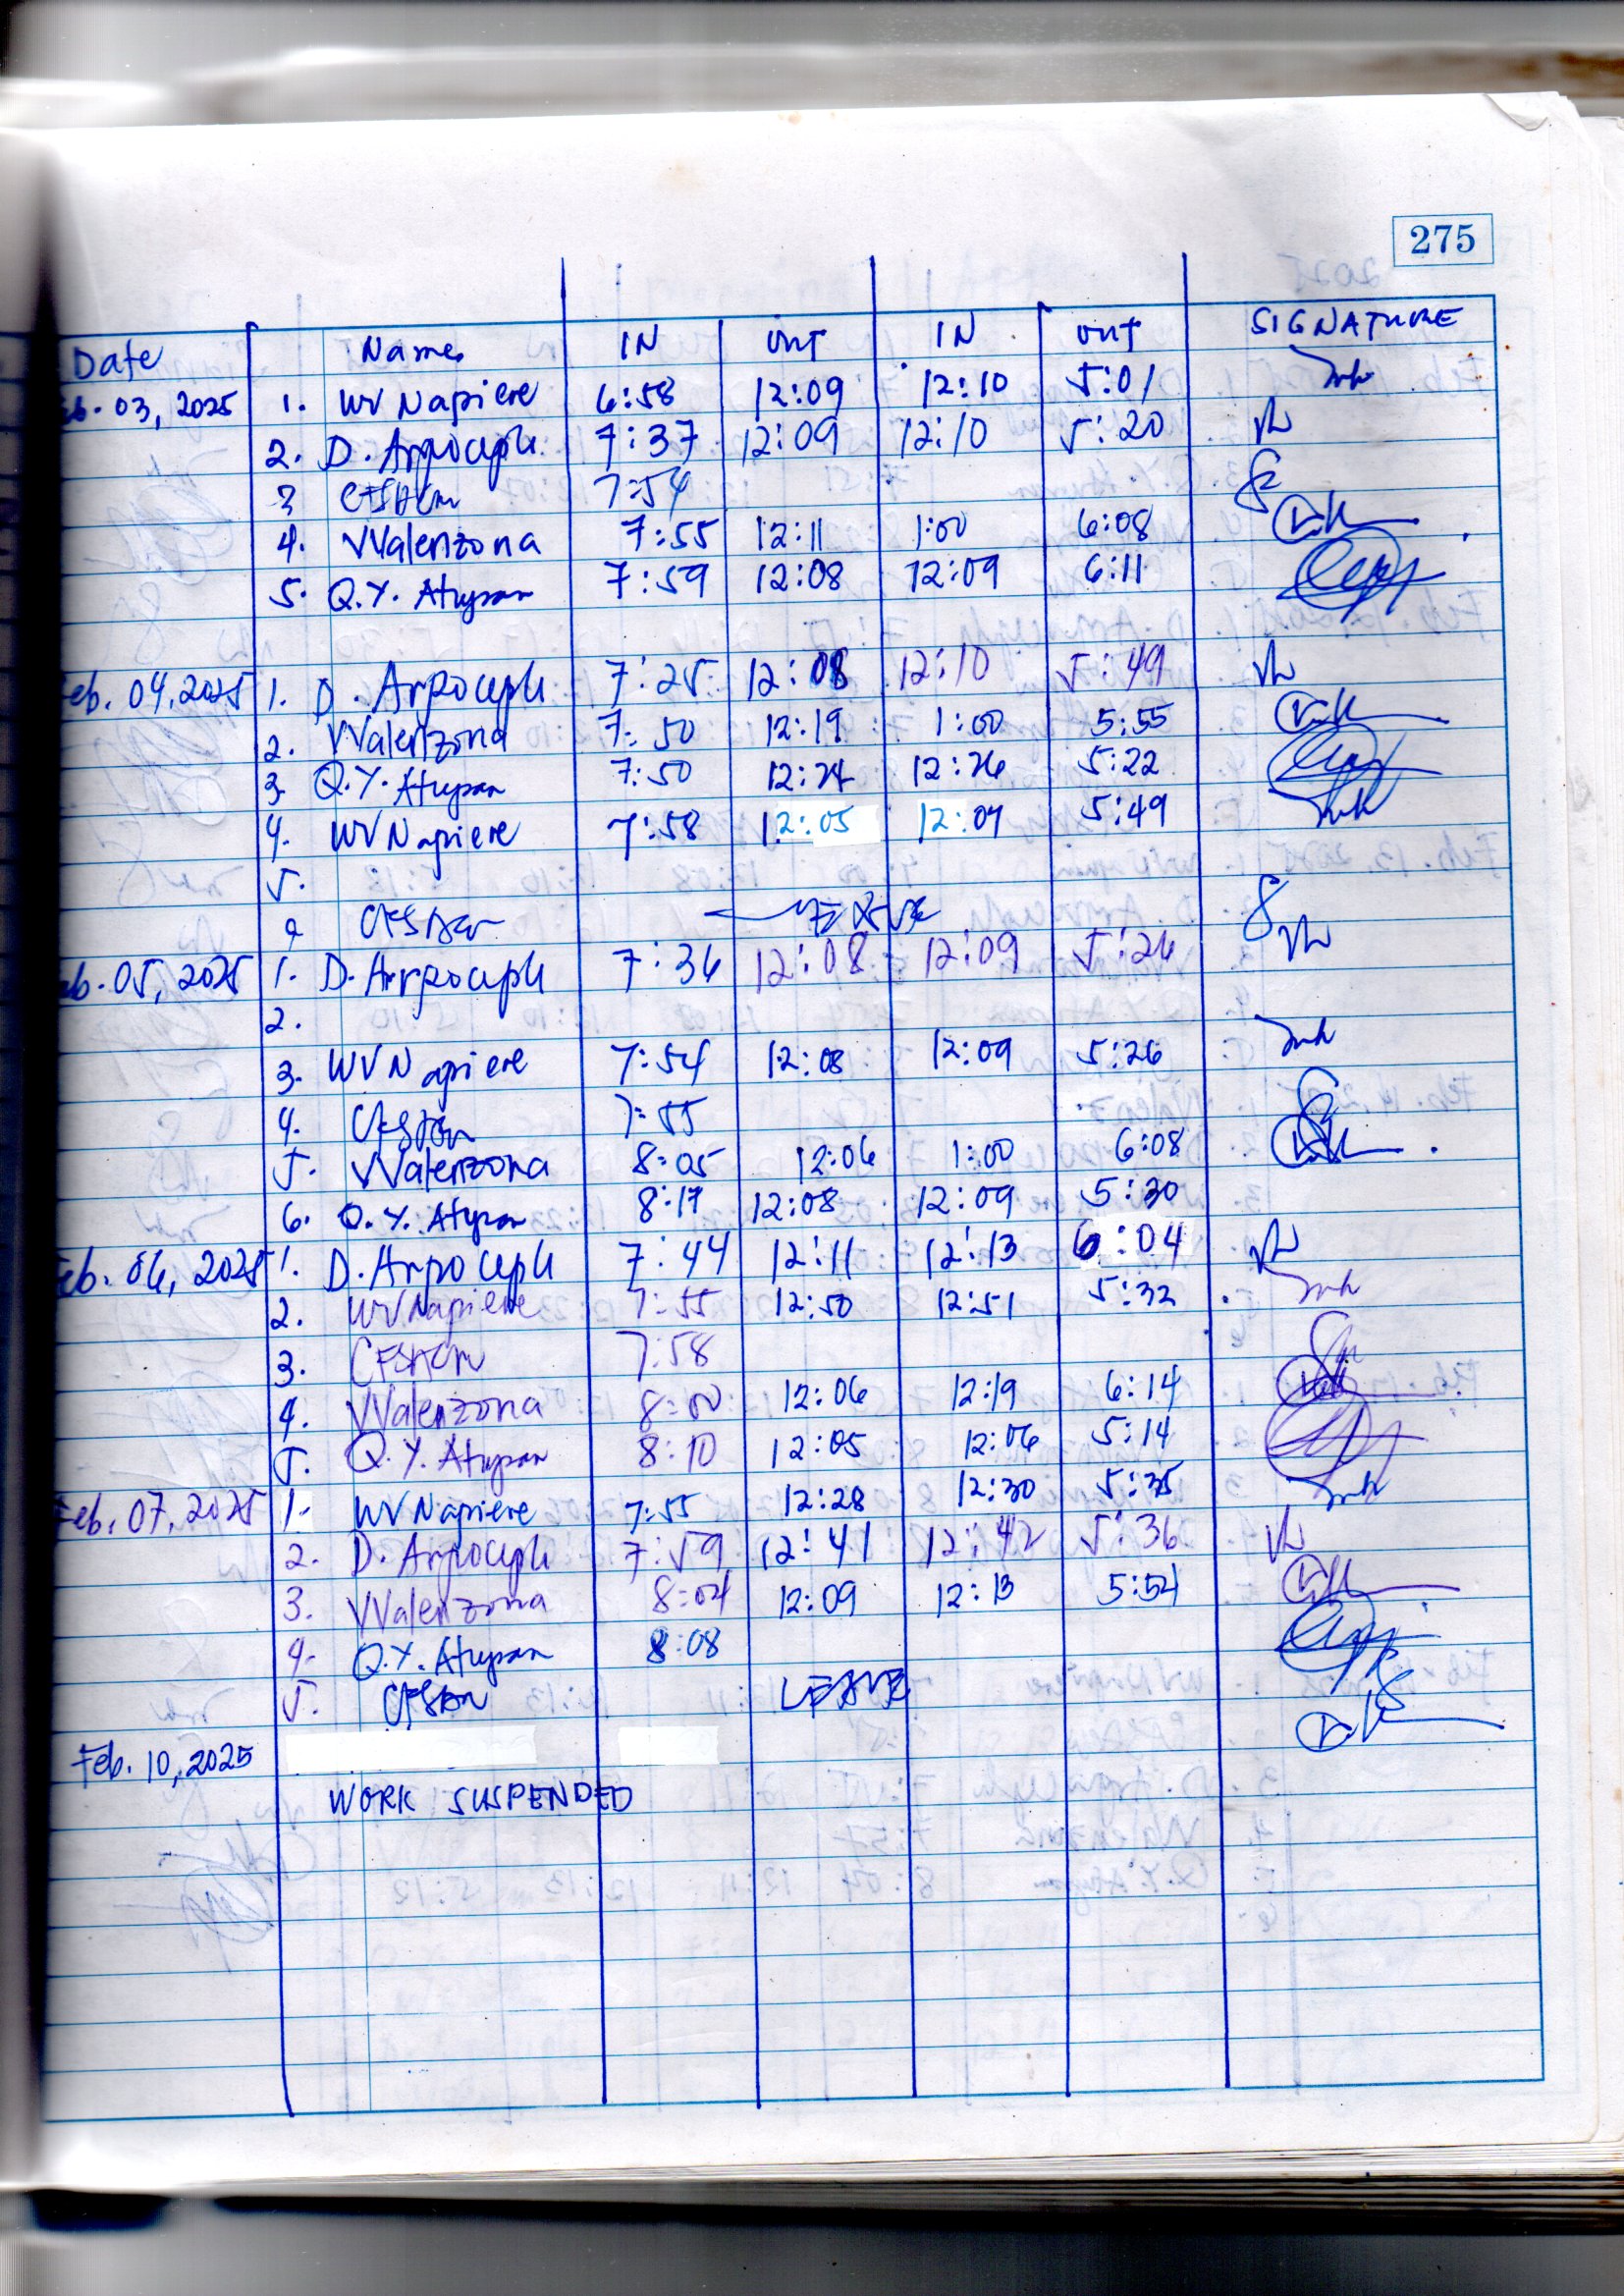 275
Date Name IN OUT IN OUT SIGNATURE
Feb. 03, 2025 1. WV Napiere 6:58 12:09 12:10 5:01
2. D. Arpoceph 7:37 12:09 12:10 5:20
3 7:54
4. VValenzona 7:55 12:11 1:00 6:08
5. Q.Y. Atupan 7:59 12:08 12:09 6:11
Feb. 04, 2025 1. D. Arpoceph 7:25 12:08 12:10 5:49
2. VValenzona 7:50 12:19 1:00 5:55
3 Q.Y. Atupan 7:50 12:24 12:26 5:22
4. WV Napiere 7:58 12:05 12:07 5:49
5.
LEAVE
Feb. 05, 2025 1. D. Arpoceph 7:36 12:08 12:09 5:26
2.
3. WV Napiere 7:54 12:08 12:09 5:26
4. 7:55
5. VValenzona 8:05 12:06 1:00 6:08
6. Q.Y. Atupan 8:17 12:08 12:09 5:30
Feb. 06, 2025 1. D. Arpoceph 7:44 12:11 12:13 6:04
2. WV Napiere 7:55 12:50 12:51 5:32
3. 7:58
4. VValenzona 8:00 12:06 12:19 6:14
5. Q.Y. Atupan 8:10 12:05 12:06 5:14
Feb. 07, 2025 1. WV Napiere 7:55 12:28 12:30 5:35
2. D. Arpoceph 7:59 12:41 12:42 5:36
3. VValenzona 8:04 12:09 12:13 5:54
4. Q.Y. Atupan 8:08
5. LEAVE
Feb. 10, 2025
WORK SUSPENDED